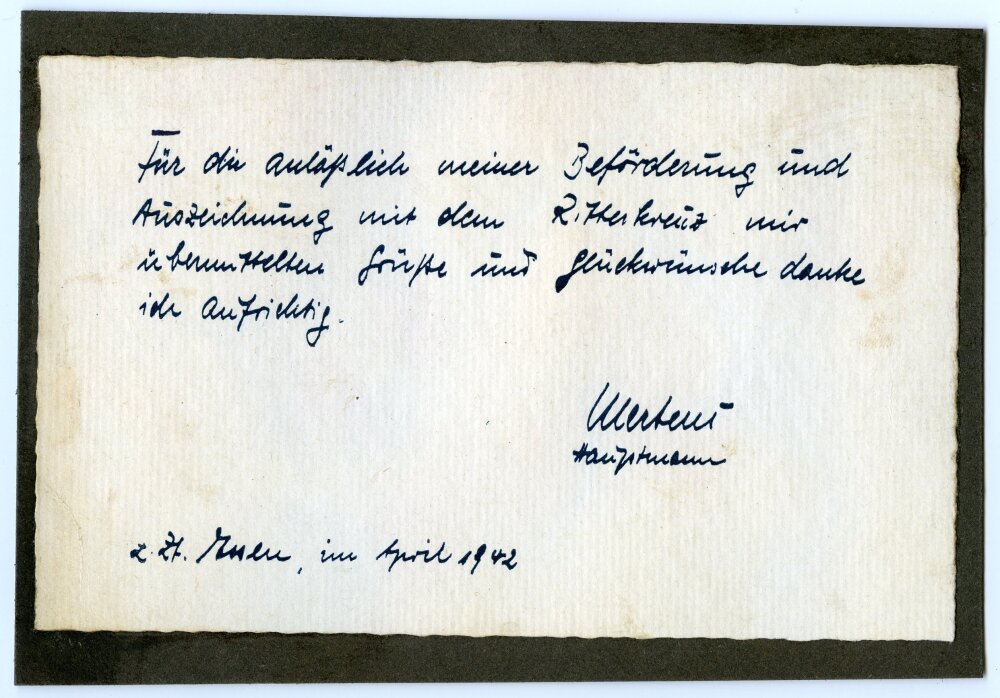 Für die anläßlich meiner Beförderung und
Auszeichnung mit dem Ritterkreuz mir
übermittelten Grüße und Glückwünsche danke
ich aufrichtig.
Mertens
Hauptmann
z. Zt. Essen, im April 1942